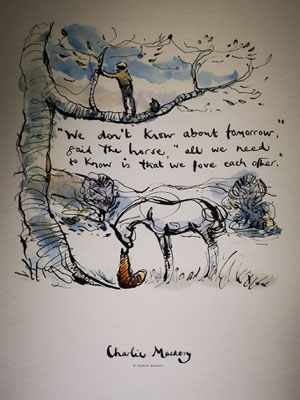 "We don't know about tomorrow,"
said the horse, "all we need
to know is that we love each other."
Charlie Mackesy
© CHARLIE MACKESY